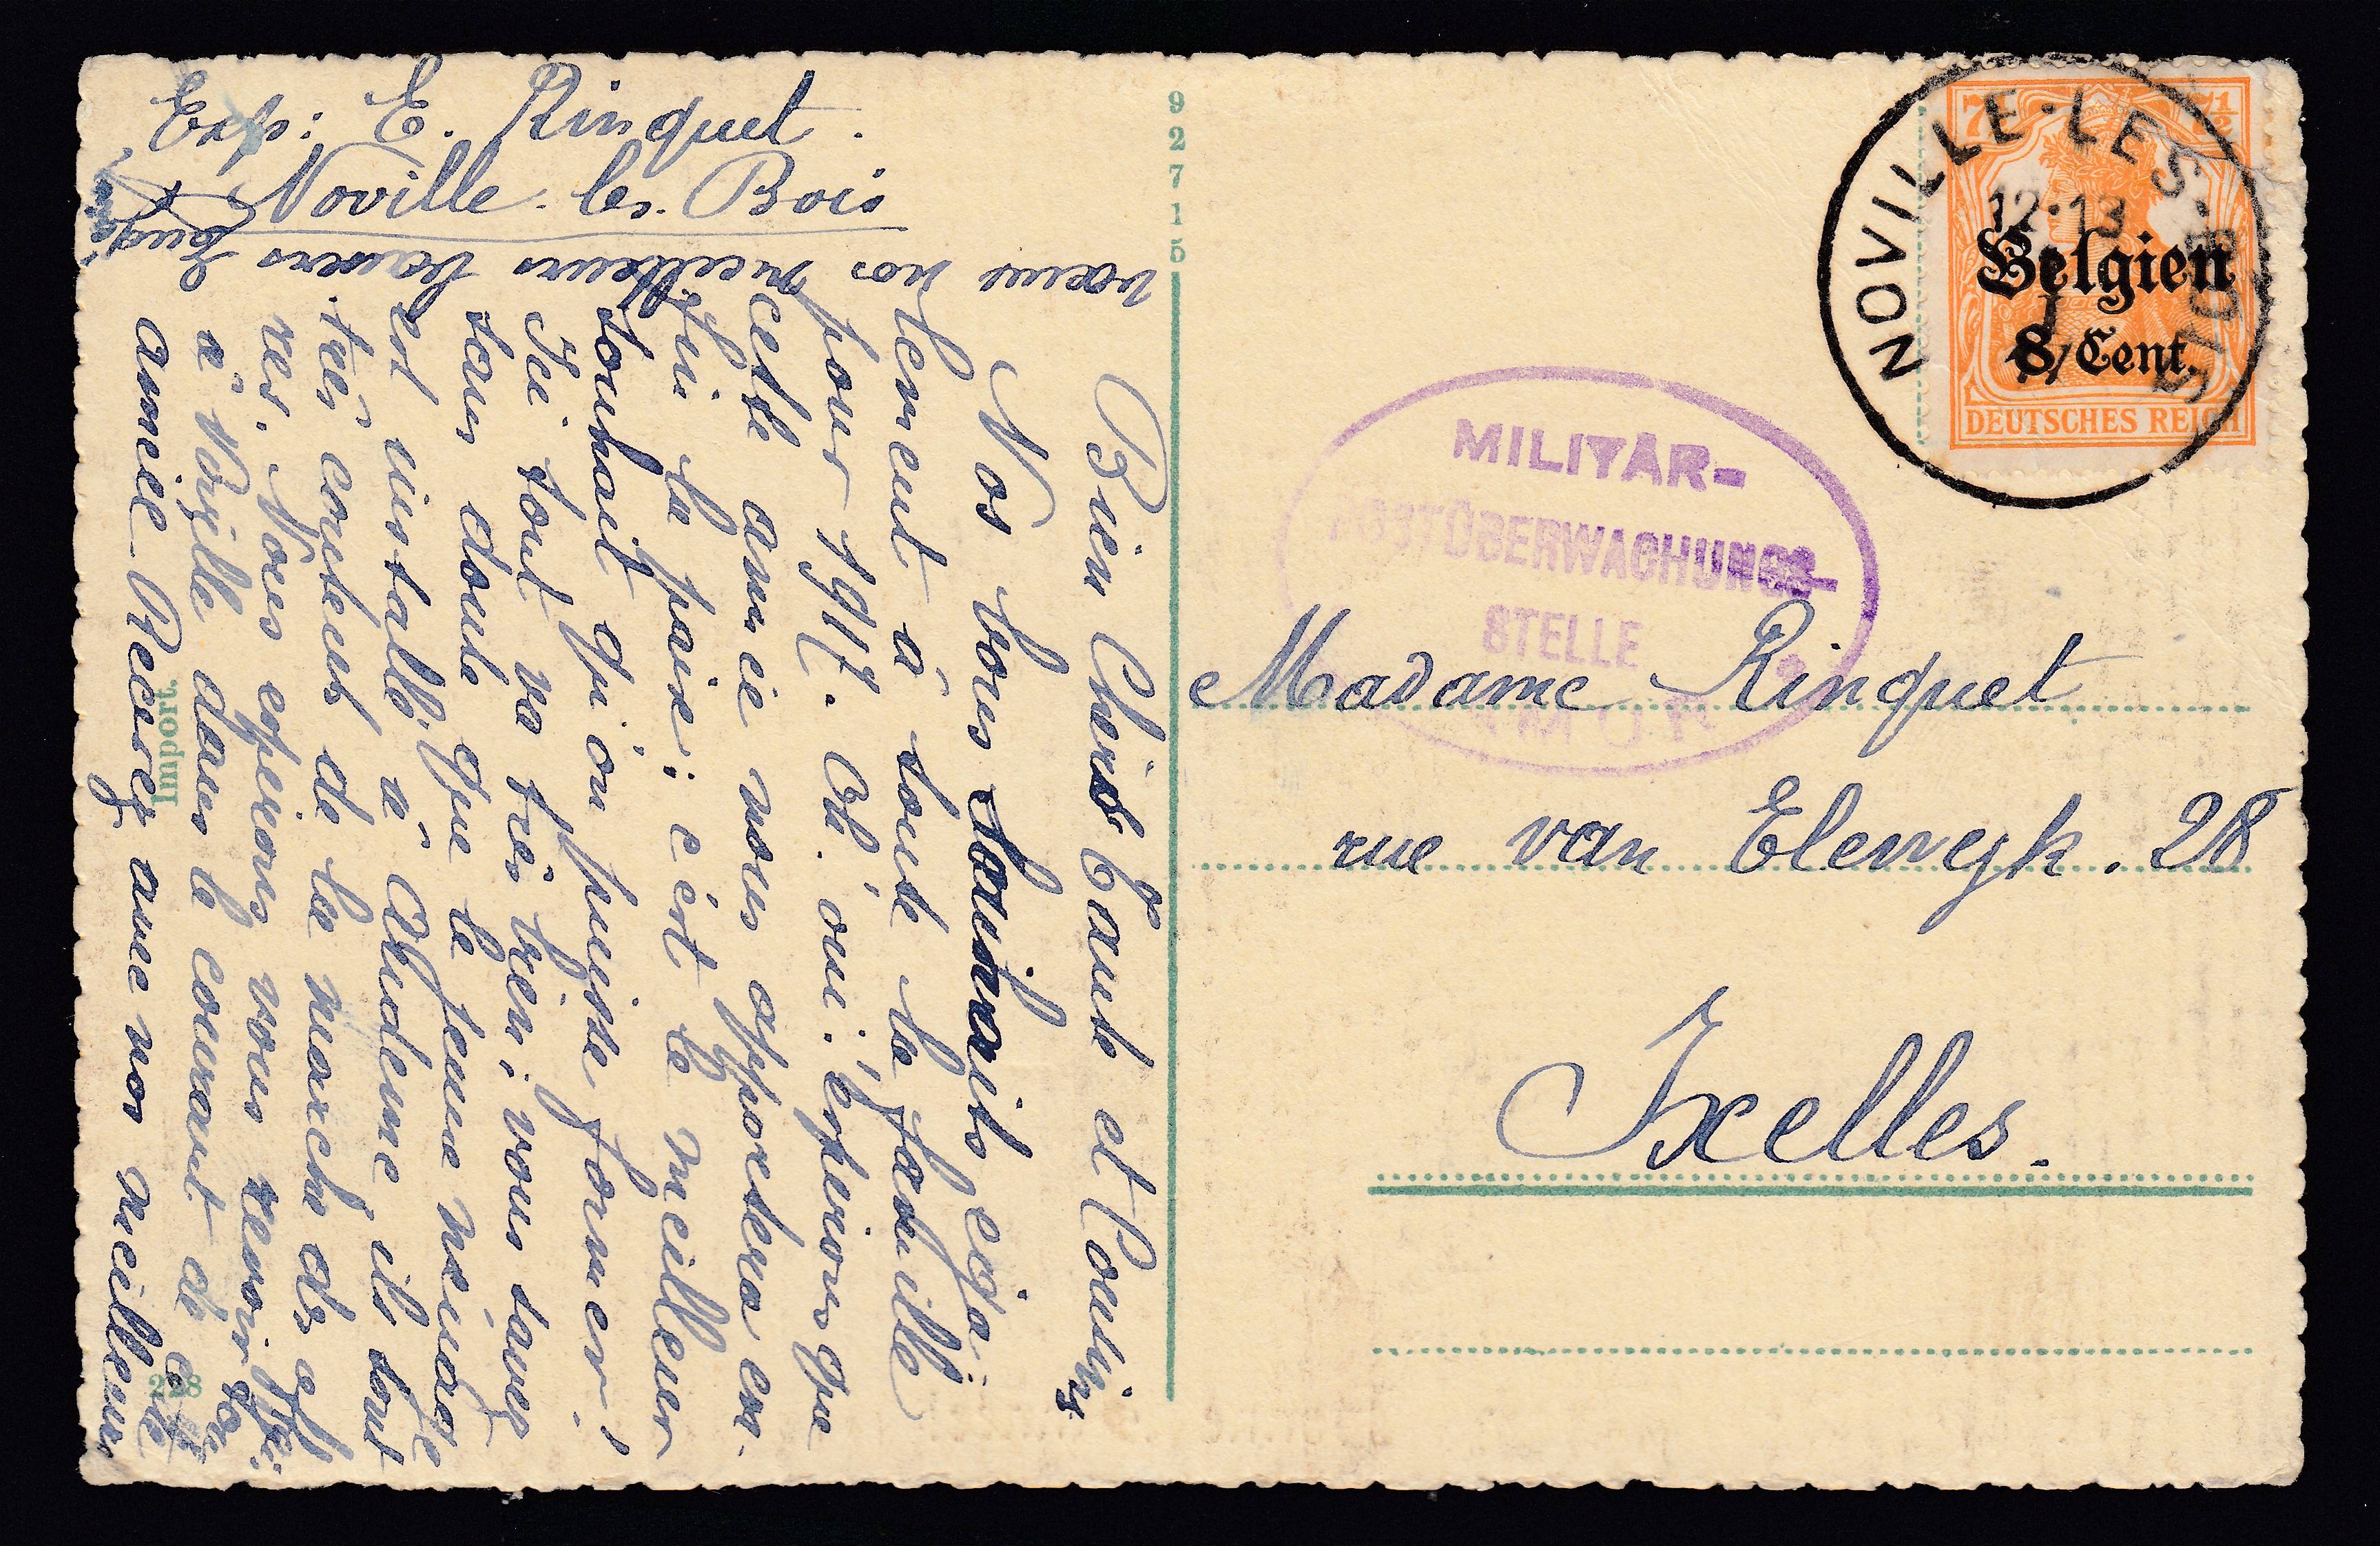 Exp: E. Rinquet.
Noville-les-Bois
Bien Chers Tante et Cousins
Nos bons Souhaits éga-
lement à toute la famille
pour 1917. Oh! oui! espérons que
cette année nous apportera en-
fin la paix; c'est le meilleur
souhait qu'on puisse former!
Ici tout va très bien; vous savez
sans doute que le jeune ménage
est installé à Andenne ils sont
très contents de la marche des affai-
res. Nous espérons vous revoir
à Noville dans le courant de cette
année. Recevez avec nos meilleurs
vœux nos meilleurs baisers
92715
Import.
288
7½
7½
Belgien
8 Cent.
DEUTSCHES REICH
NOVILLE-LES-BOIS
12-13
MILITÄR-
POSTÜBERWACHUNGS-
STELLE
NAMUR
Madame Rinquet
rue van Elewyk. 28
Ixelles.